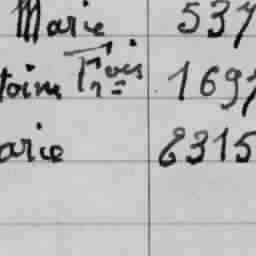 Marie 537
toine Fçois 1697
arie 8315